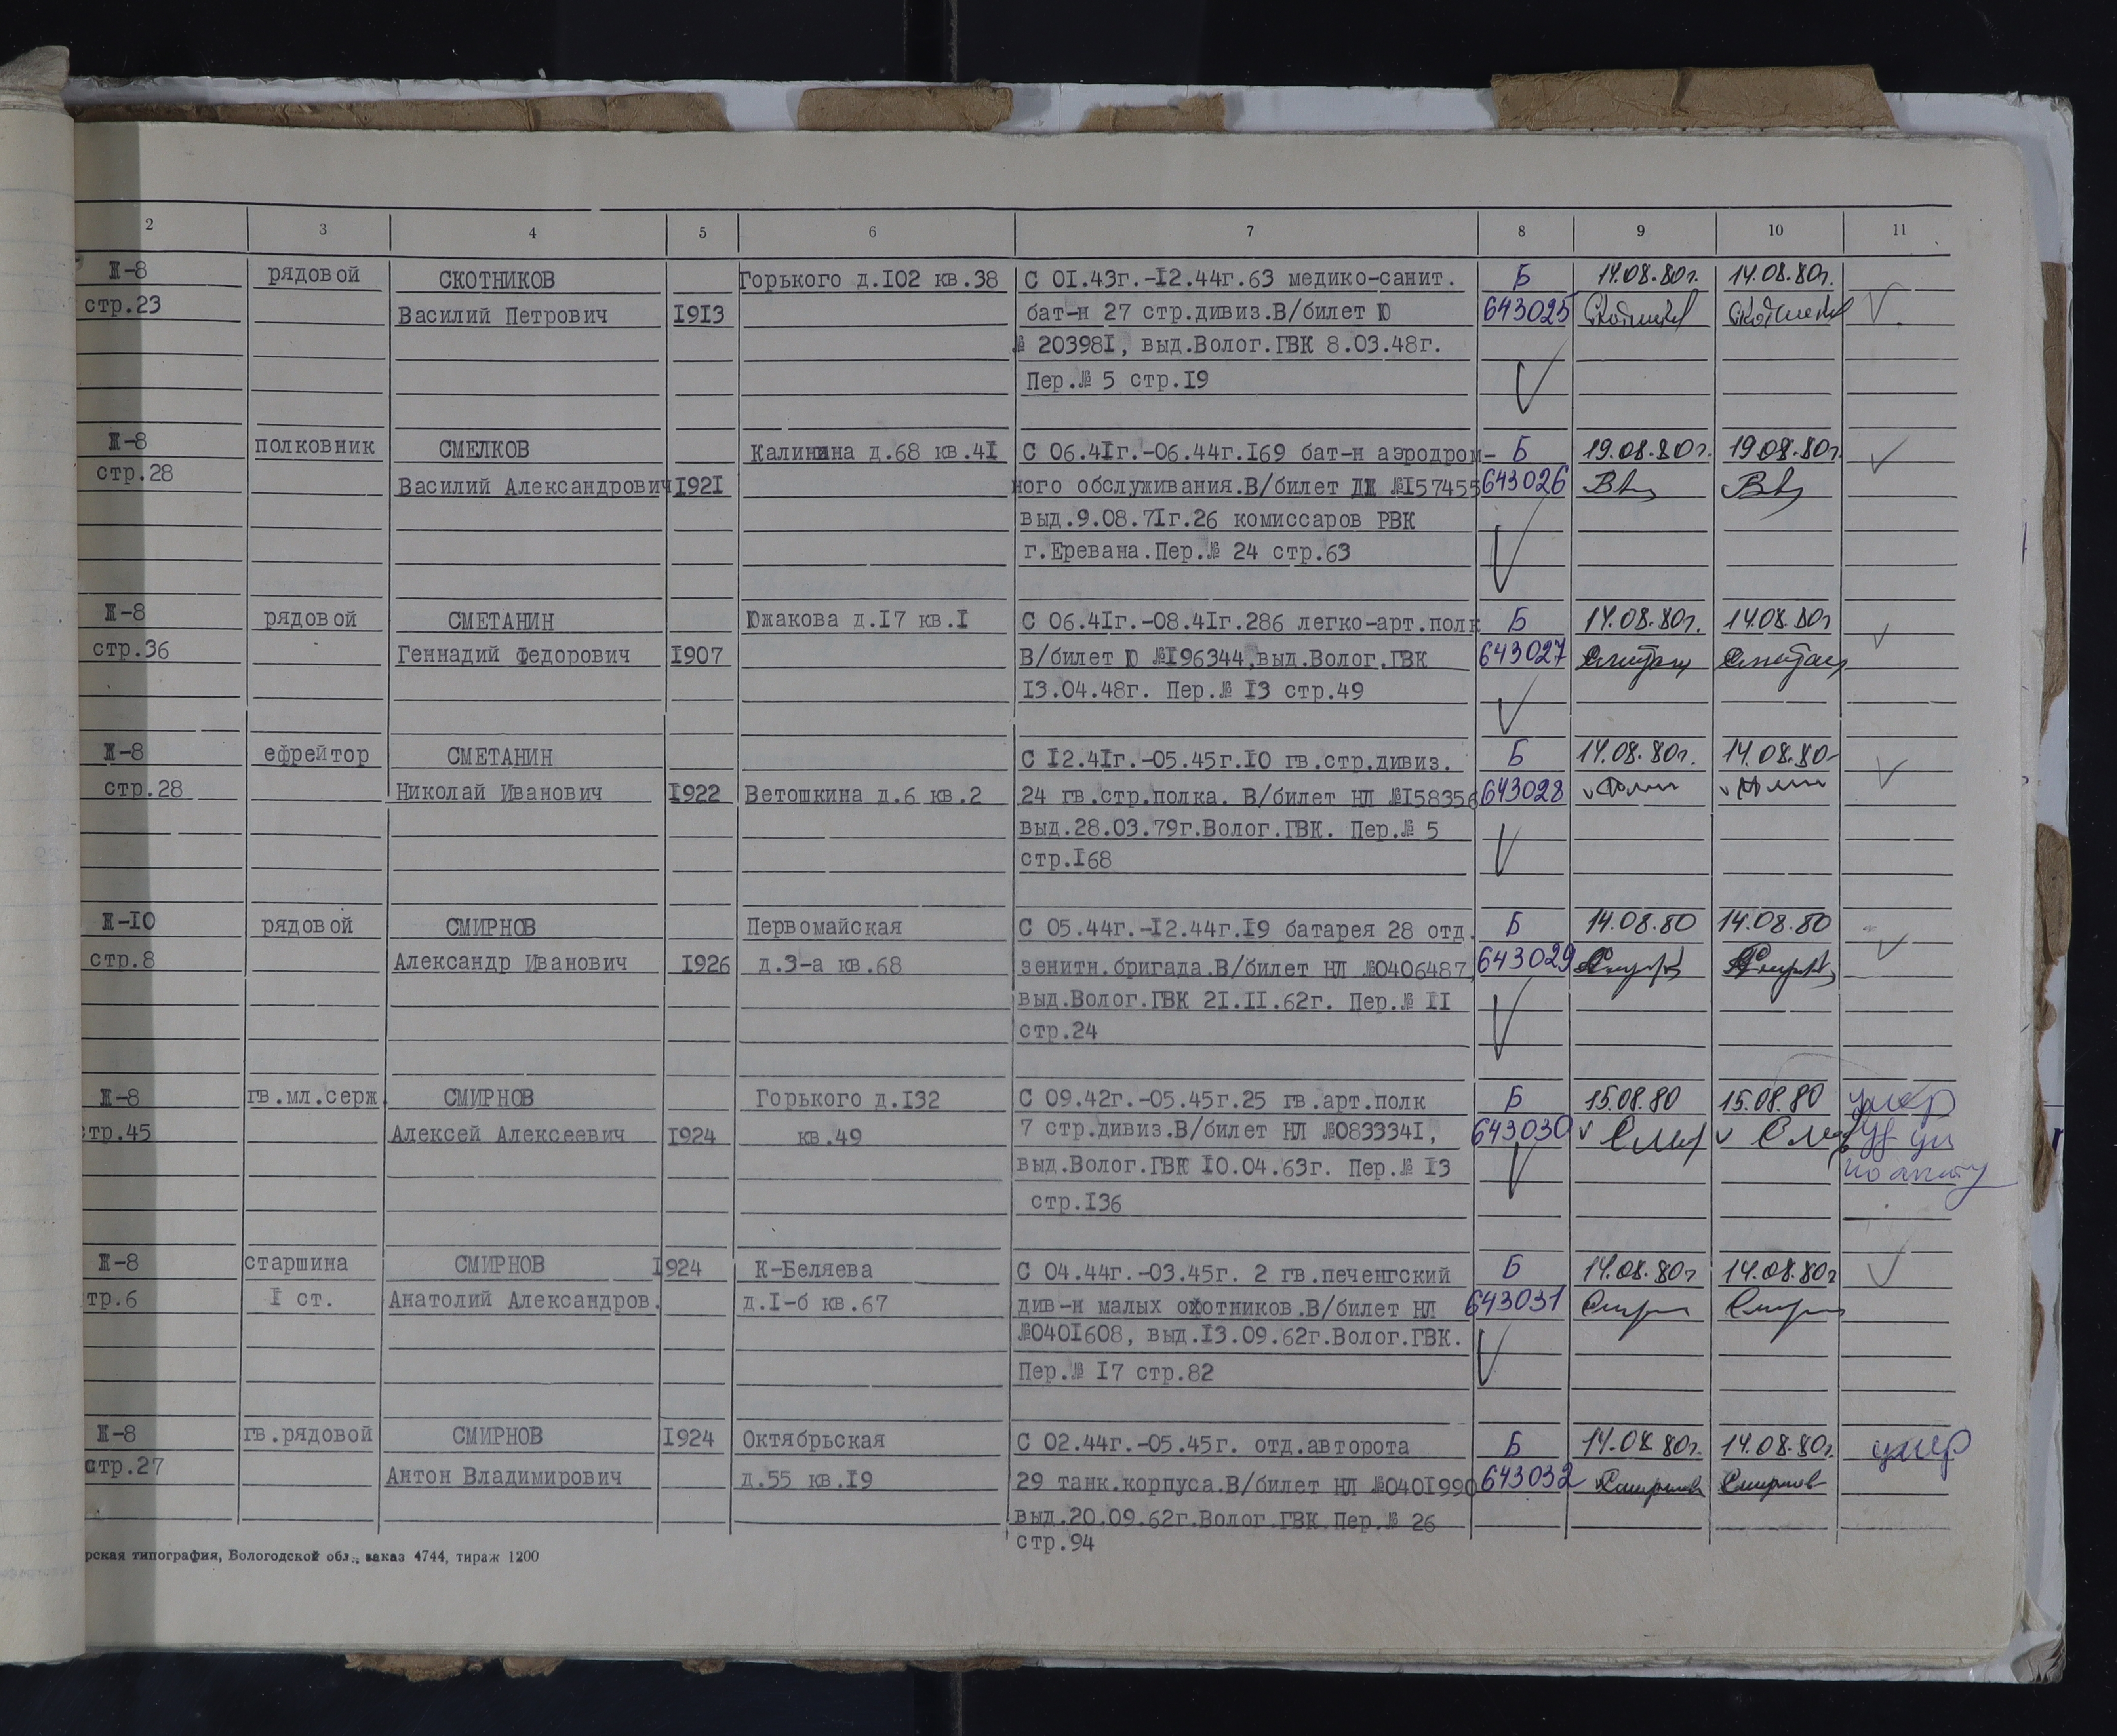 2 3 4 5 6 7 8 9 10 11
II-8 рядовой СКОТНИКОВ Горького д.102 кв.38 С 01.43г.-12.44г.63 медико-санит. Б 14.08.80г. 14.08.80г.
стр.23 Василий Петрович 1913 бат-н 27 стр.дивиз.В/билет Ю 643025
№ 203981, выд.Волог.ГВК 8.03.48г.
Пер.№ 5 стр.19
-8 полковник СМЕЛКОВ Калинина д.68 кв.41 С 06.41г.-06.44г.169 бат-н аэродром- Б 19.08.80г. 19.08.80г.
стр.28 Василий Александрович 1921 ного обслуживания.В/билет №157455 643026
выд.9.08.71г.26 комиссаров РВК
г.Еревана.Пер.№ 24 стр.63
-8 рядовой СМЕТАНИН Южакова д.17 кв.1 С 06.41г.-08.41г.286 легко-арт.полк Б 14.08.80г. 14.08.80г
стр.36 Геннадий Федорович 1907 В/билет Ю №196344,выд.Волог.ГВК 643027
13.04.48г. Пер.№ 13 стр.49
-8 ефрейтор СМЕТАНИН С 12.41г.-05.45г.10 гв.стр.дивиз. Б 14.08.80г. 14.08.80-
стр.28 Николай Иванович 1922 Ветошкина д.6 кв.2 24 гв.стр.полка. В/билет НЛ №158356 643028
выд.28.03.79г.Волог.ГВК. Пер.№ 5
стр.168
-10 рядовой СМИРНОВ Первомайская С 05.44г.-12.44г.19 батарея 28 отд. Б 14.08.80 14.08.80
стр.8 Александр Иванович 1926 д.3-а кв.68 зенитн.бригада.В/билет НЛ №0406487, 643029
выд.Волог.ГВК 21.11.62г. Пер.№ 11
стр.24
-8 гв.мл.серж. СМИРНОВ Горького д.132 С 09.42г.-05.45г.25 гв.арт.полк Б 15.08.80 15.08.80 умер
тр.45 Алексей Алексеевич 1924 кв.49 7 стр.дивиз.В/билет НЛ №0833341, 643030
выд.Волог.ГВК 10.04.63г. Пер.№ 13 по акту
стр.136
-8 старшина СМИРНОВ 1924 К-Беляева С 04.44г.-03.45г. 2 гв.печенгский Б 14.08.80г 14.08.80г
тр.6 1 ст. Анатолий Александров. д.1-б кв.67 див-н малых охотников.В/билет НЛ 643031
№0401608, выд.13.09.62г.Волог.ГВК.
Пер.№ 17 стр.82
-8 гв.рядовой СМИРНОВ 1924 Октябрьская С 02.44г.-05.45г. отд.авторота Б 14.08.80г. 14.08.80г. умер
стр.27 Антон Владимирович д.55 кв.19 29 танк.корпуса.В/билет НЛ №0401990 643032 Смирнов Смирнов
выд.20.09.62г.Волог.ГВК Пер.№ 26
стр.94
рская типография, Вологодской обл., заказ 4744, тираж 1200